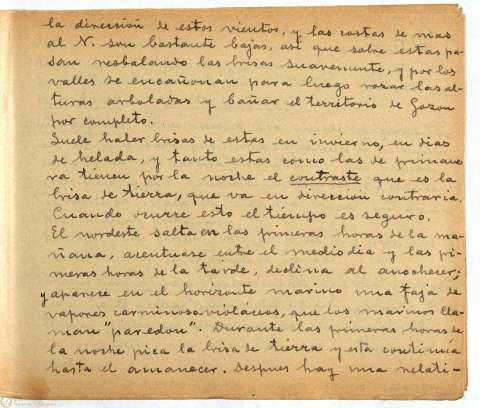 la dirección de estos vientos, y las costas de mas
al N. son bastante bajas, así que sobre estas pa-
san resbalando las brisas suavemente, y por los
valles se encañonan para luego rozar las al-
turas arboladas y bañar el territorio de Gozon
por completo.
Suele haber brisas de estas en invierno, en dias
de helada, y tanto estas como las de primave
ra tienen por la noche el contraste que es la
brisa de tierra, que va en dirección contraria.
Cuando ocurre esto el tiempo es seguro.
El nordeste salta en las primeras horas de la ma-
ñana, acentuase entre el medio dia y las pri-
meras horas de la tarde, declina al anochecer;
y aparece en el horizonte marino una faja de
vapores carminoso-violáceos, que los marinos lla-
man "paredon". Durante las primeras horas de
la noche pica la brisa de tierra y esta continúa
hasta el amanecer. Despues hay una relati-